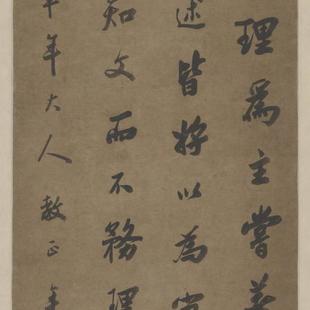 理為主嘗著
述皆將以為當
知文而不務理
年大人教正年